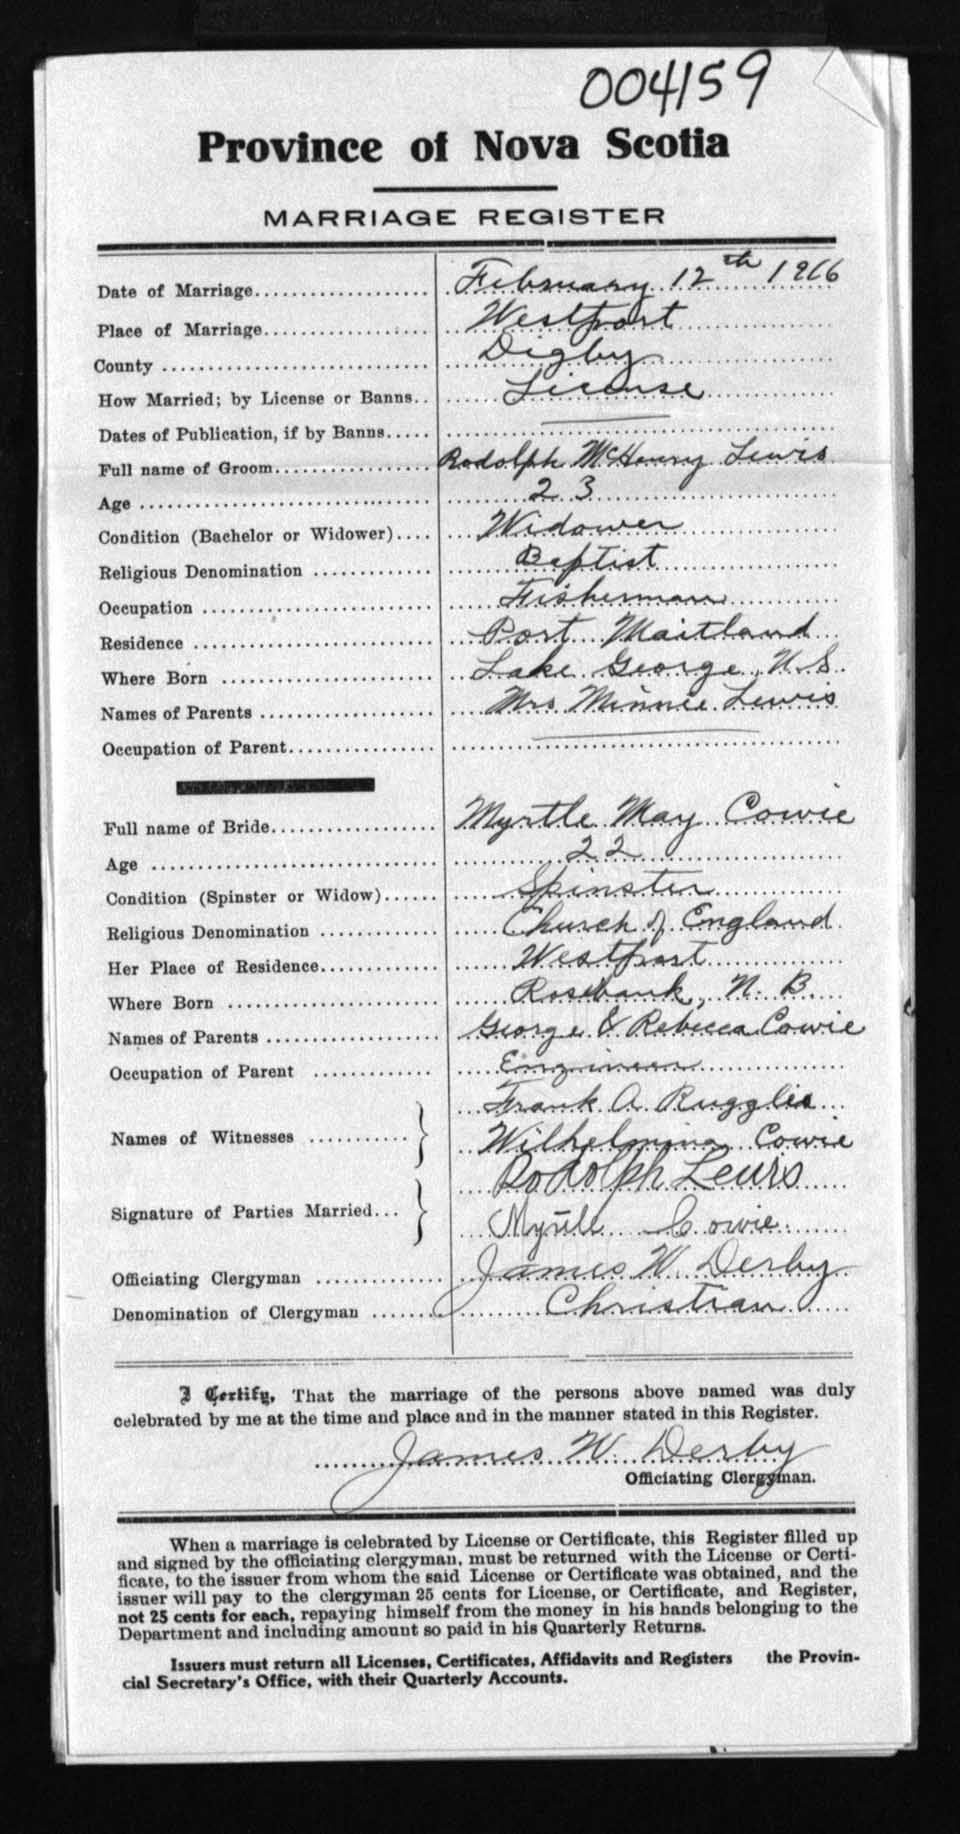 004159
Province of Nova Scotia
MARRIAGE REGISTER
Date of Marriage.................... February 12th 1916
Place of Marriage.................... Westport
County .................... Digby
How Married; by License or Banns.. License
Dates of Publication, if by Banns.....
Full name of Groom.................... Rodolph McHenry Lewis
Age .................... 23
Condition (Bachelor or Widower).... Widower
Religious Denomination .................... Baptist
Occupation .................... Fisherman
Residence .................... Port Maitland
Where Born .................... Lake George, N.S.
Names of Parents .................... Mrs Minnie Lewis
Occupation of Parent....................
Full name of Bride.................... Myrtle May Cowie
Age .................... 22
Condition (Spinster or Widow)...... Spinster
Religious Denomination .................... Church of England
Her Place of Residence.................... Westport
Where Born .................... Rosebank, N. B.
Names of Parents .................... George & Rebecca Cowie
Occupation of Parent .................... Engineer
Names of Witnesses .................... Frank A Ruggles
Wilhelmina Cowie
Signature of Parties Married... Rodolph Lewis
Myrtle Cowie
Officiating Clergyman .................... James W. Derby
Denomination of Clergyman ....... Christian
I Certify, That the marriage of the persons above named was duly
celebrated by me at the time and place and in the manner stated in this Register.
James W. Derby
Officiating Clergyman.
When a marriage is celebrated by License or Certificate, this Register filled up
and signed by the officiating clergyman, must be returned with the License or Certi-
ficate, to the issuer from whom the said License or Certificate was obtained, and the
issuer will pay to the clergyman 25 cents for License, or Certificate, and Register,
not 25 cents for each, repaying himself from the money in his hands belonging to the
Department and including amount so paid in his Quarterly Returns.
Issuers must return all Licenses, Certificates, Affidavits and Registers the Provin-
cial Secretary's Office, with their Quarterly Accounts.